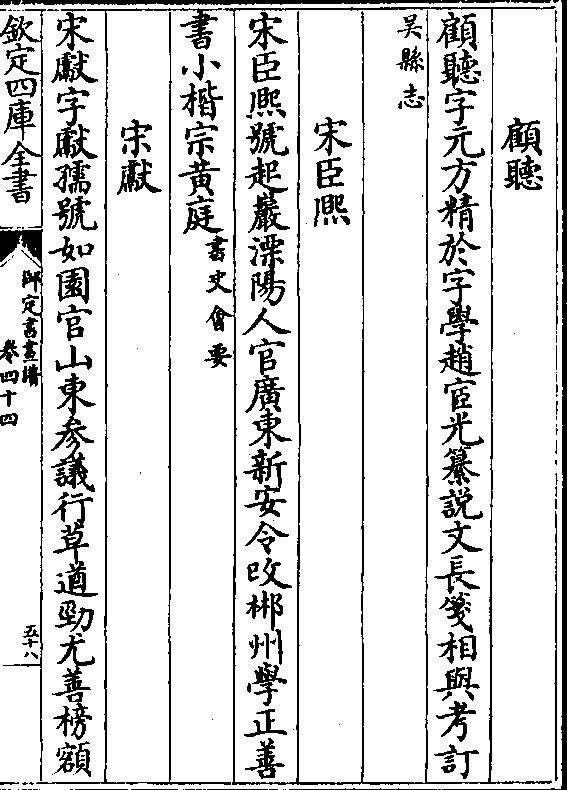 顧聽
顧聽字元方精於字學趙宧光纂説文長箋相與考訂
吴縣志
宋臣熈
宋臣熈號起巖溧陽人官廣東新安令改郴州學正善
書小楷宗黄庭書史會要
宋獻
宋獻字獻孺號如園官山東參議行草遒勁尤善榜額
欽定四庫全書
御定書畫譜
卷四十四
五十八